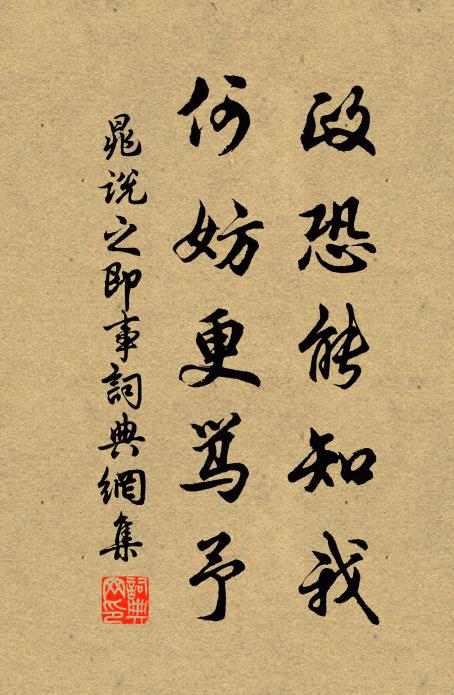 政恐能知我
何妨更罵予
晁說之即事詞典網集
詞典网印